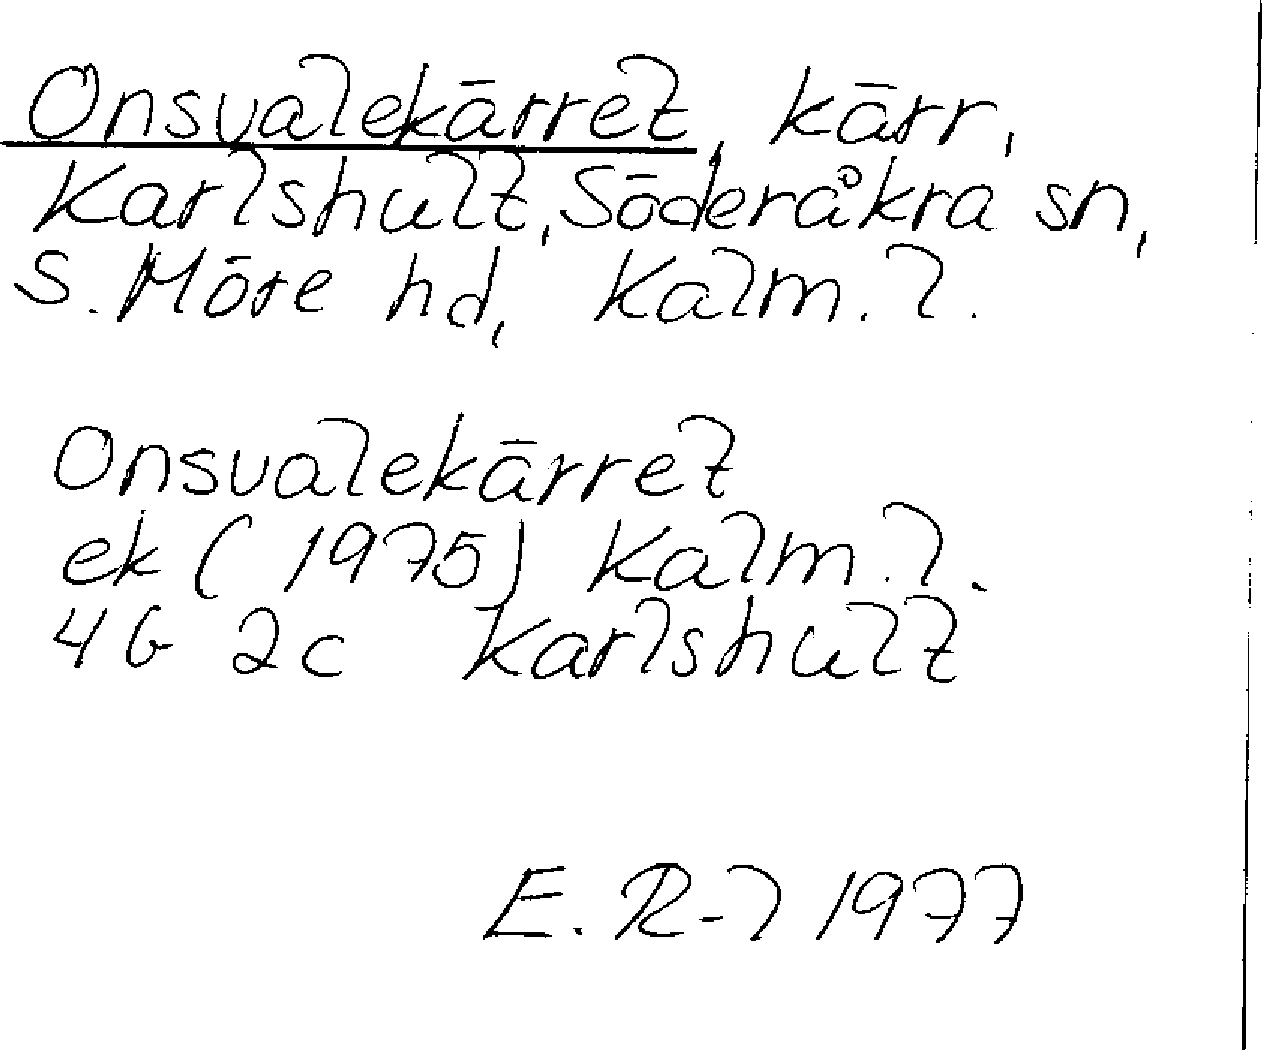 Onsvalekärret, kärr,
Karlshult, Söderåkra sn,
S. Möre hd, Kalm. l.
Onsvalekärret
ek (1975) Kalm. l.
4G 2c Karlshult
E. R-l 1977